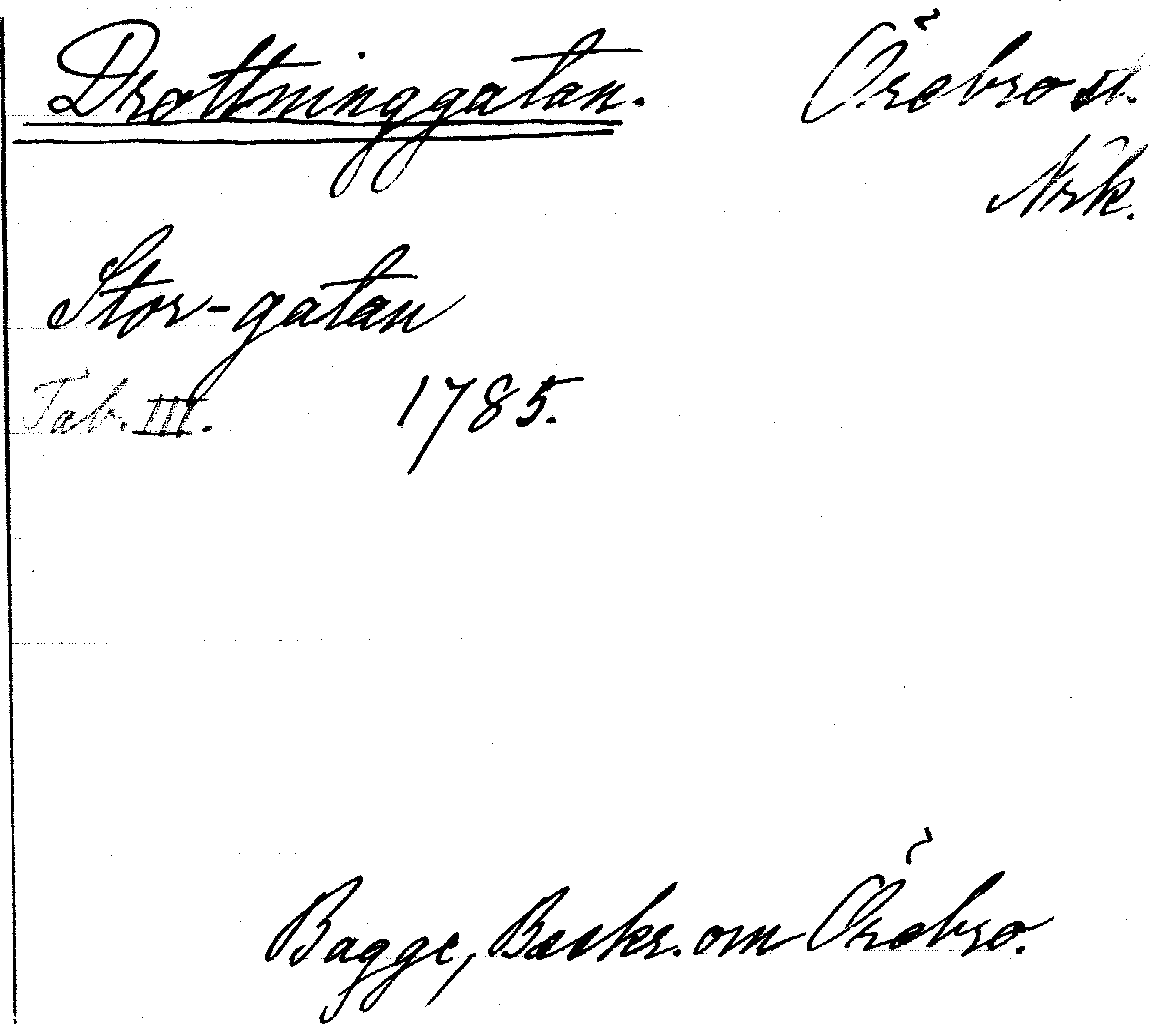 Drottninggatan. Örebro st.
Nrk.
Stor-gatan
Tab. III. 1785.
Bagge, Beskr. om Örebro.